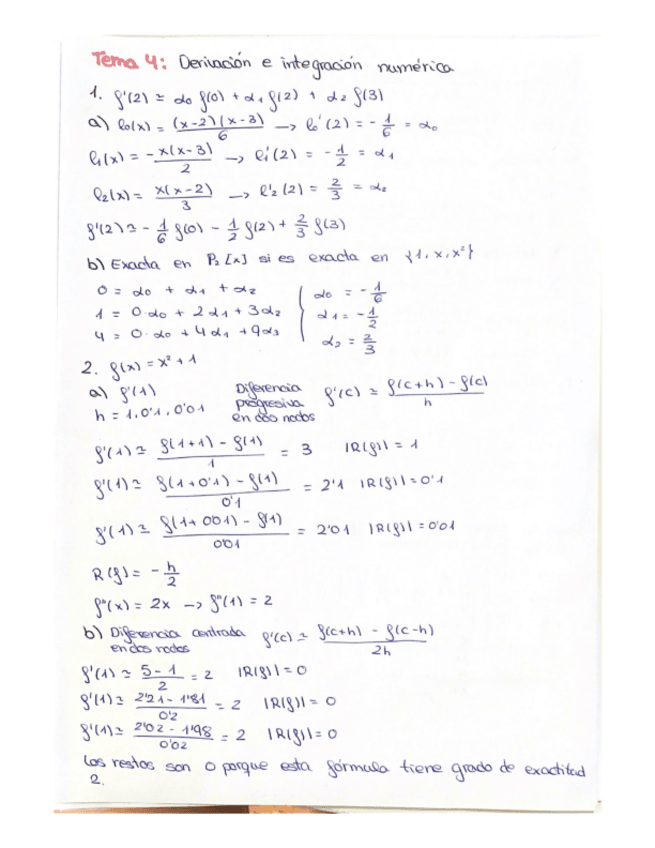 Tema 4: Derivación e integración numérica
1. f'(2) ≃ α₀ f(0) + α₁ f(2) + α₂ f(3)
a) l₀(x) = (x-2)(x-3)/6 → l₀'(2) = -1/6 = α₀
l₁(x) = -x(x-3)/2 → l₁'(2) = -1/2 = α₁
l₂(x) = x(x-2)/3 → l₂'(2) = 2/3 = α₂
f'(2) ≃ -1/6 f(0) - 1/2 f(2) + 2/3 f(3)
b) Exacta en P₂[x] si es exacta en {1, x, x²}
0 = α₀ + α₁ + α₂
1 = 0·α₀ + 2α₁ + 3α₂
4 = 0·α₀ + 4α₁ + 9α₃
α₀ = -1/6
α₁ = -1/2
α₂ = 2/3
2. f(x) = x² + 1
a) f'(1)
h = 1, 0'1, 0'01
Diferencia
progresiva
en dos nodos
f'(c) ≃ f(c+h) - f(c)/h
f'(1) ≃ f(1+1) - f(1)/1 = 3 |R(f)| = 1
f'(1) ≃ f(1+0'1) - f(1)/0'1 = 2'1 |R(f)| = 0'1
f'(1) ≃ f(1+001) - f(1)/001 = 2'01 |R(f)| = 0'01
R(f) = -h/2
f''(x) = 2x → f''(1) = 2
b) Diferencia centrada
en dos nodos
f'(c) ≃ f(c+h) - f(c-h)/2h
f'(1) ≃ 5-1/2 = 2 |R(f)| = 0
f'(1) ≃ 2'21 - 1'81/0'2 = 2 |R(f)| = 0
f'(1) ≃ 2'02 - 1'98/0'02 = 2 |R(f)| = 0
Los restos son 0 porque esta fórmula tiene grado de exactitud
2.